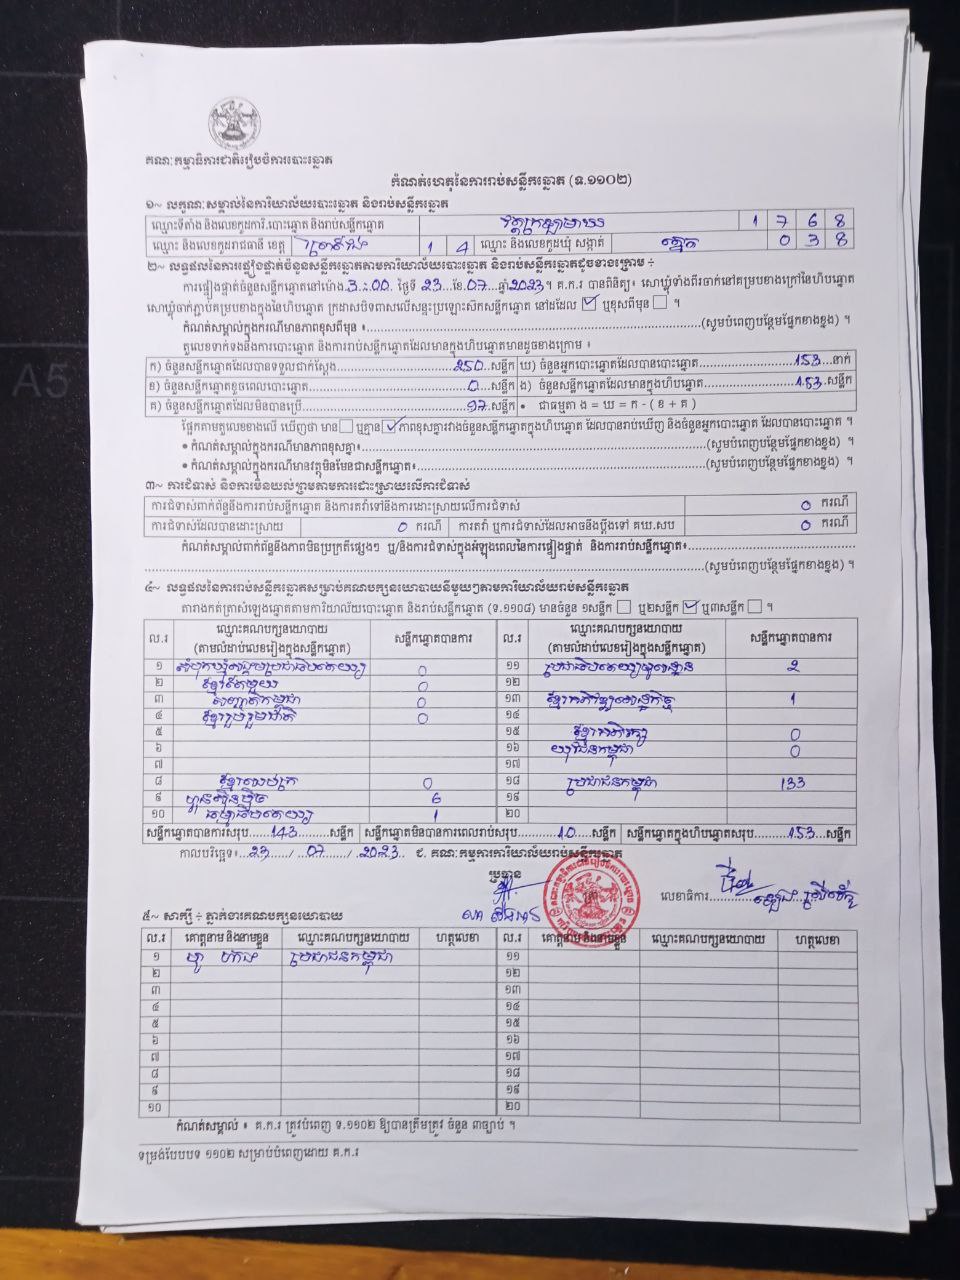 គណៈកម្មាធិការជាតិរៀបចំការបោះឆ្នោត
កំណត់ហេតុនៃការរាប់សន្លឹកឆ្នោត (ទ.១១០២)
១~ លក្ខណៈសម្គាល់នៃការិយាល័យបោះឆ្នោត និងរាប់សន្លឹកឆ្នោត
ឈ្មោះទីតាំង និងលេខកូដការិ.បោះឆ្នោត និងរាប់សន្លឹកឆ្នោត 1 7 6 8
ឈ្មោះ និងលេខកូដរាជធានី ខេត្ត ព្រៃវែង 1 4 ឈ្មោះ និងលេខកូដឃុំ សង្កាត់ 0 3 8
២~ លទ្ធផលនៃការផ្ទៀងផ្ទាត់ចំនួនសន្លឹកឆ្នោតតាមការិយាល័យបោះឆ្នោត និងរាប់សន្លឹកឆ្នោតដូចខាងក្រោម ៖
ការផ្ទៀងផ្ទាត់ចំនួនសន្លឹកឆ្នោតនៅម៉ោង 3:00 ថ្ងៃទី 23 ខែ 07 ឆ្នាំ 2023 ។ គ.ក.រ បានពិនិត្យ៖ សោឃ្លុំទាំងពីរចាក់នៅគម្របខាងក្រៅនៃហិបឆ្នោត
សោឃ្លុំចាក់ភ្ជាប់គម្របខាងក្នុងនៃហិបឆ្នោត ក្រដាសបិទពាសលើសន្ទះប្រឡោះសឹកសន្លឹកឆ្នោត នៅដដែល ☑ ឬខុសពីមុន ☐ ។
កំណត់សម្គាល់ក្នុងករណីមានភាពខុសពីមុន ៖ (សូមបំពេញបន្ថែមផ្នែកខាងខ្នង) ។
តួលេខទាក់ទងនឹងការបោះឆ្នោត និងការរាប់សន្លឹកឆ្នោតដែលមានក្នុងហិបឆ្នោតមានដូចខាងក្រោម ៖
ក) ចំនួនសន្លឹកឆ្នោតដែលបានទទួលជាក់ស្តែង 250 សន្លឹក ឃ) ចំនួនអ្នកបោះឆ្នោតដែលបានបោះឆ្នោត 153 នាក់
ខ) ចំនួនសន្លឹកឆ្នោតខូចពេលបោះឆ្នោត 0 សន្លឹក ង) ចំនួនសន្លឹកឆ្នោតដែលមានក្នុងហិបឆ្នោត 153 សន្លឹក
គ) ចំនួនសន្លឹកឆ្នោតដែលមិនបានប្រើ 97 សន្លឹក • ជាធម្មតា ង = ឃ = ក - ( ខ + គ )
ផ្អែកតាមតួលេខខាងលើ ឃើញថា មាន ☐ ឬគ្មាន ☑ ភាពខុសគ្នារវាងចំនួនសន្លឹកឆ្នោតក្នុងហិបឆ្នោត ដែលបានរាប់ឃើញ និងចំនួនអ្នកបោះឆ្នោត ដែលបានបោះឆ្នោត ។
• កំណត់សម្គាល់ក្នុងករណីមានភាពខុសគ្នា៖ (សូមបំពេញបន្ថែមផ្នែកខាងខ្នង) ។
• កំណត់សម្គាល់ក្នុងករណីមានវត្ថុមិនមែនជាសន្លឹកឆ្នោត៖ (សូមបំពេញបន្ថែមផ្នែកខាងខ្នង) ។
៣~ ការជំទាស់ និងការមិនយល់ព្រមតាមការដោះស្រាយលើការជំទាស់
ការជំទាស់ពាក់ព័ន្ធនឹងការរាប់សន្លឹកឆ្នោត និងការតវ៉ាទៅនឹងការដោះស្រាយលើការជំទាស់ 0 ករណី
ការជំទាស់ដែលបានដោះស្រាយ 0 ករណី ការតវ៉ា ឬការជំទាស់ដែលអាចនឹងប្តឹងទៅ គឃ.សប 0 ករណី
កំណត់សម្គាល់ពាក់ព័ន្ធនឹងភាពមិនប្រក្រតីផ្សេងៗ ឬ/និងការជំទាស់ក្នុងអំឡុងពេលនៃការផ្ទៀងផ្ទាត់ និងការរាប់សន្លឹកឆ្នោត៖
(សូមបំពេញបន្ថែមផ្នែកខាងខ្នង) ។
៤~ លទ្ធផលនៃការរាប់សន្លឹកឆ្នោតសម្រាប់គណបក្សនយោបាយនីមួយៗតាមការិយាល័យរាប់សន្លឹកឆ្នោត
តារាងកត់ត្រាសំឡេងឆ្នោតតាមការិយាល័យបោះឆ្នោត និងរាប់សន្លឹកឆ្នោត (ទ.១១០៨) មានចំនួន ១សន្លឹក ☐ ឬ២សន្លឹក ☑ ឬ៣សន្លឹក ☐ ។
ល.រ ឈ្មោះគណបក្សនយោបាយ (តាមលំដាប់លេខរៀងក្នុងសន្លឹកឆ្នោត) សន្លឹកឆ្នោតបានការ ល.រ ឈ្មោះគណបក្សនយោបាយ (តាមលំដាប់លេខរៀងក្នុងសន្លឹកឆ្នោត) សន្លឹកឆ្នោតបានការ
១ សំបុកឃ្មុំសង្គមប្រជាធិបតេយ្យ 0 ១១ ប្រជាធិបតេយ្យមូលដ្ឋាន 2
២ ខ្មែរតែមួយ 0 ១២
៣ សញ្ជាតិកម្ពុជា 0 ១៣ ខ្មែរអភិវឌ្ឍន៍សេដ្ឋកិច្ច 1
៤ ខ្មែររួបរួមជាតិ 0 ១៤
៥ ១៥ ខ្មែរអភិរក្ស 0
៦ ១៦ យុវជនកម្ពុជា 0
៧ ១៧
៨ ខ្មែរឈប់ក្រ 0 ១៨ ប្រជាជនកម្ពុជា 133
៩ ហ៊្វុនស៊ិនប៉ិច 6 ១៩
១០ ធម្មាធិបតេយ្យ 1 ២០
សន្លឹកឆ្នោតបានការសរុប 143 សន្លឹក សន្លឹកឆ្នោតមិនបានការពេលរាប់សរុប 10 សន្លឹក សន្លឹកឆ្នោតក្នុងហិបឆ្នោតសរុប 153 សន្លឹក
កាលបរិច្ឆេទ៖ 23 / 07 / 2023 ជ. គណៈកម្មការការិយាល័យរាប់សន្លឹកឆ្នោត
ប្រធាន
លេខាធិការ
៥~ សាក្សី ៖ ភ្នាក់ងារគណបក្សនយោបាយ
ល.រ គោត្តនាម និងនាមខ្លួន ឈ្មោះគណបក្សនយោបាយ ហត្ថលេខា ល.រ គោត្តនាម និងនាមខ្លួន ឈ្មោះគណបក្សនយោបាយ ហត្ថលេខា
១ ប្រជាជនកម្ពុជា ១១
២ ១២
៣ ១៣
៤ ១៤
៥ ១៥
៦ ១៦
៧ ១៧
៨ ១៨
៩ ១៩
១០ ២០
កំណត់សម្គាល់ ៖ គ.ក.រ ត្រូវបំពេញ ទ.១១០២ ឱ្យបានត្រឹមត្រូវ ចំនួន ៣ច្បាប់ ។
ទម្រង់បែបបទ ១១០២ សម្រាប់បំពេញដោយ គ.ក.រ
A5